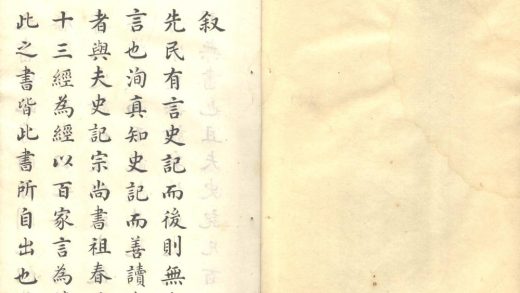 叙
先民有言史記而後則無
言也洵真知史記而善讀
者與夫史記宗尚書祖春
十三經為經以百家言為
此之書皆此書所自出也